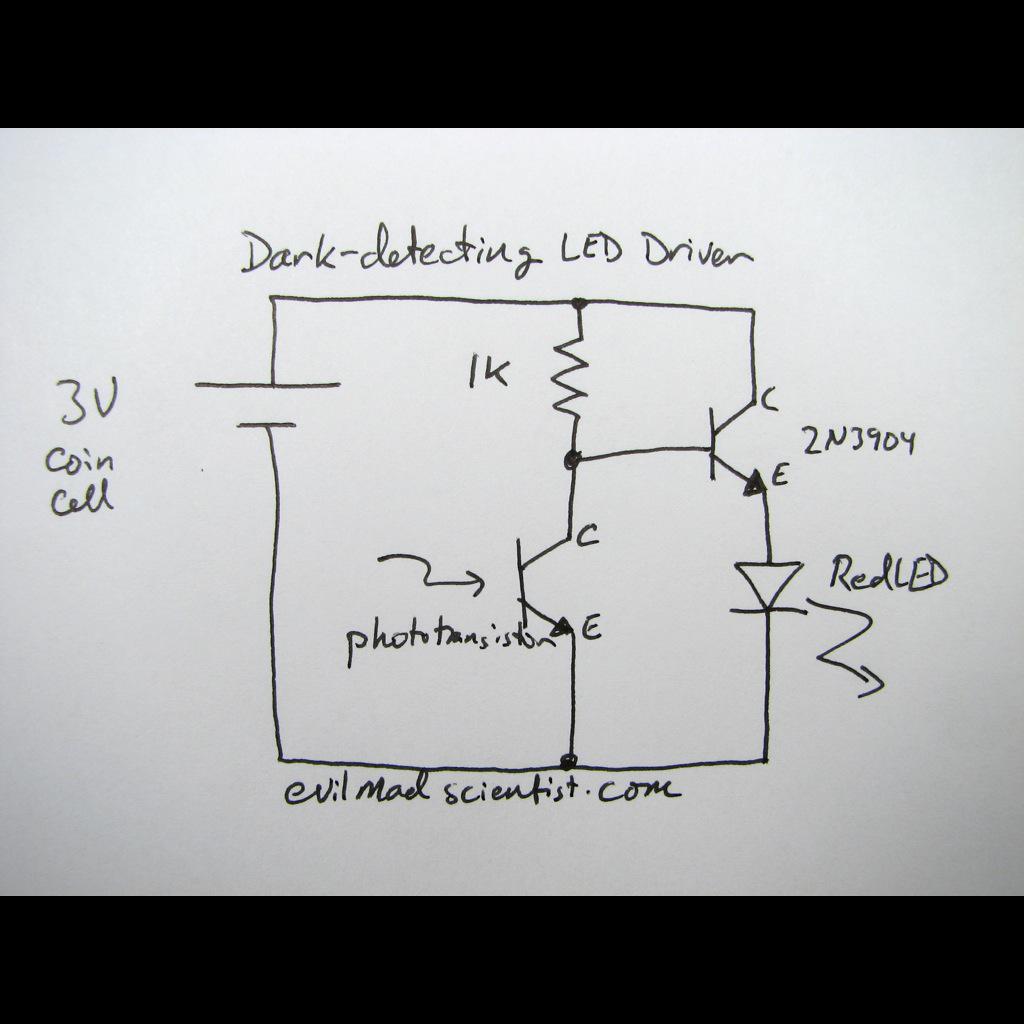 Dark-detecting LED Driver
1K
3V
coin
cell
C
2N3904
E
C
Red LED
phototransistor
E
evilmadscientist.com